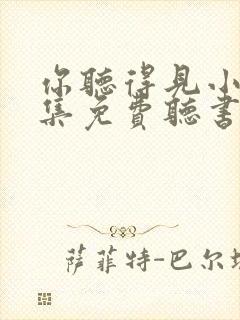 你聽得見小
集免費聽書
萨菲特-巴尔